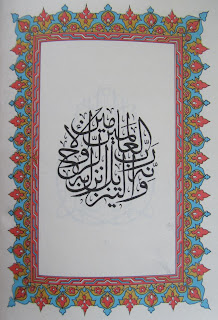 وإنه لتنزيل رب العالمين نزل به الروح الأمين